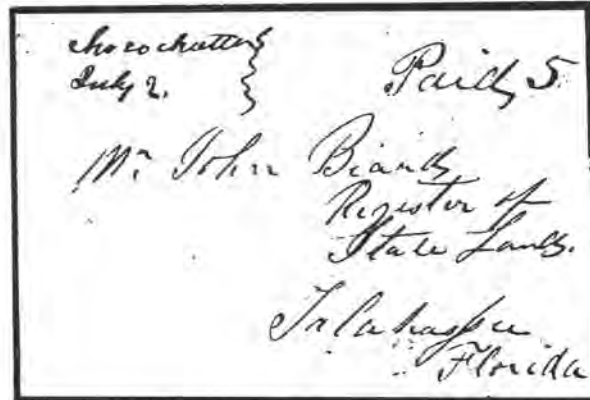 Chocochattee
July 2.
Paid, 5
Mr. John Beard
Register of
State Lands.
Talahassee
Florida